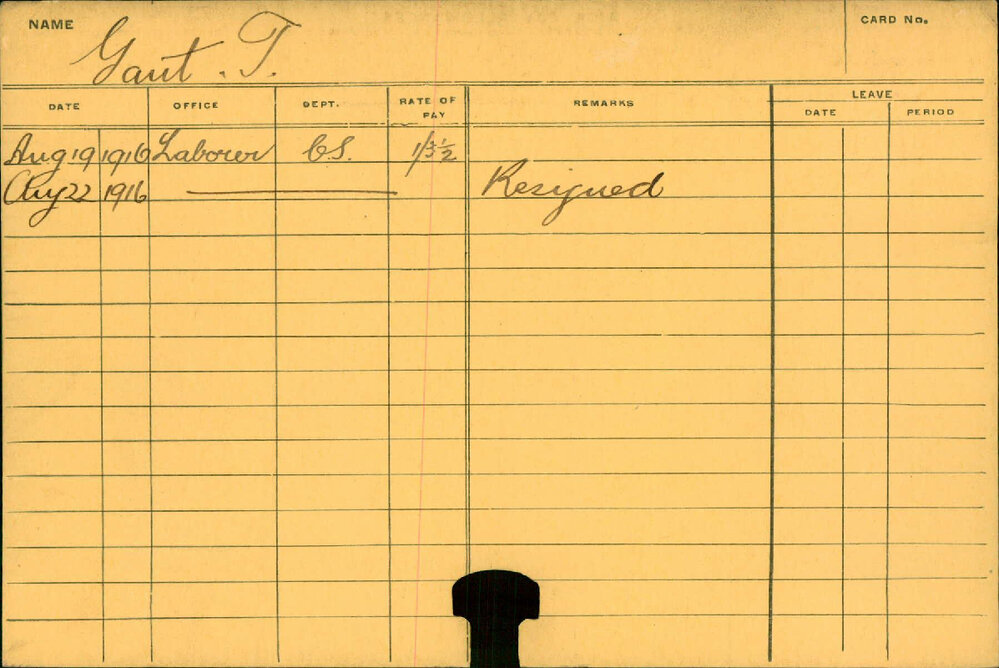 NAME Gant . T. CARD No.
DATE OFFICE DEPT. RATE OF PAY REMARKS LEAVE
DATE PERIOD
Aug 19 1916 Laborer C.S.
Aug 22 1916 Resigned